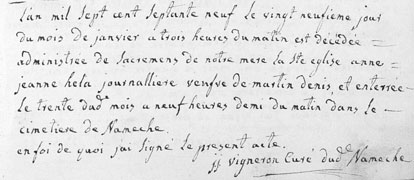 L'an mil sept cent septante neuf le vingt neufieme jour
du mois de janvier a trois heures du matin est décédée =
administrée de sacremens de notre mere la ste eglise anne =
jeanne hela journalliere veufve de martin denis, et enterrée
le trente dud. mois a neuf heures demi du matin dans le =
cimetiere de Nameche.
en foi de quoi jai signé le present acte.
jj vigneron Curé dud.e Nameche